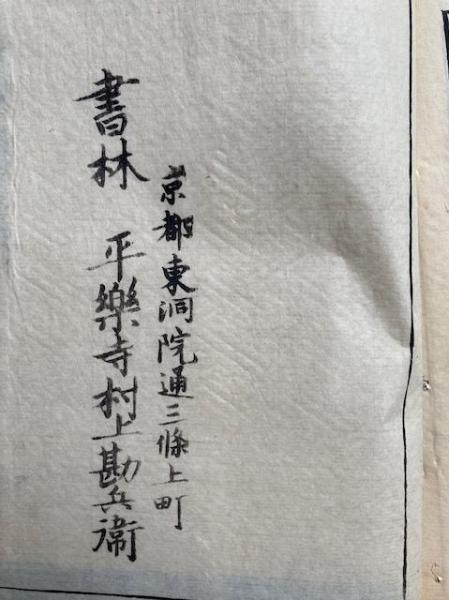 京都東洞院通三條上町
書林 平樂寺村上勘兵衛